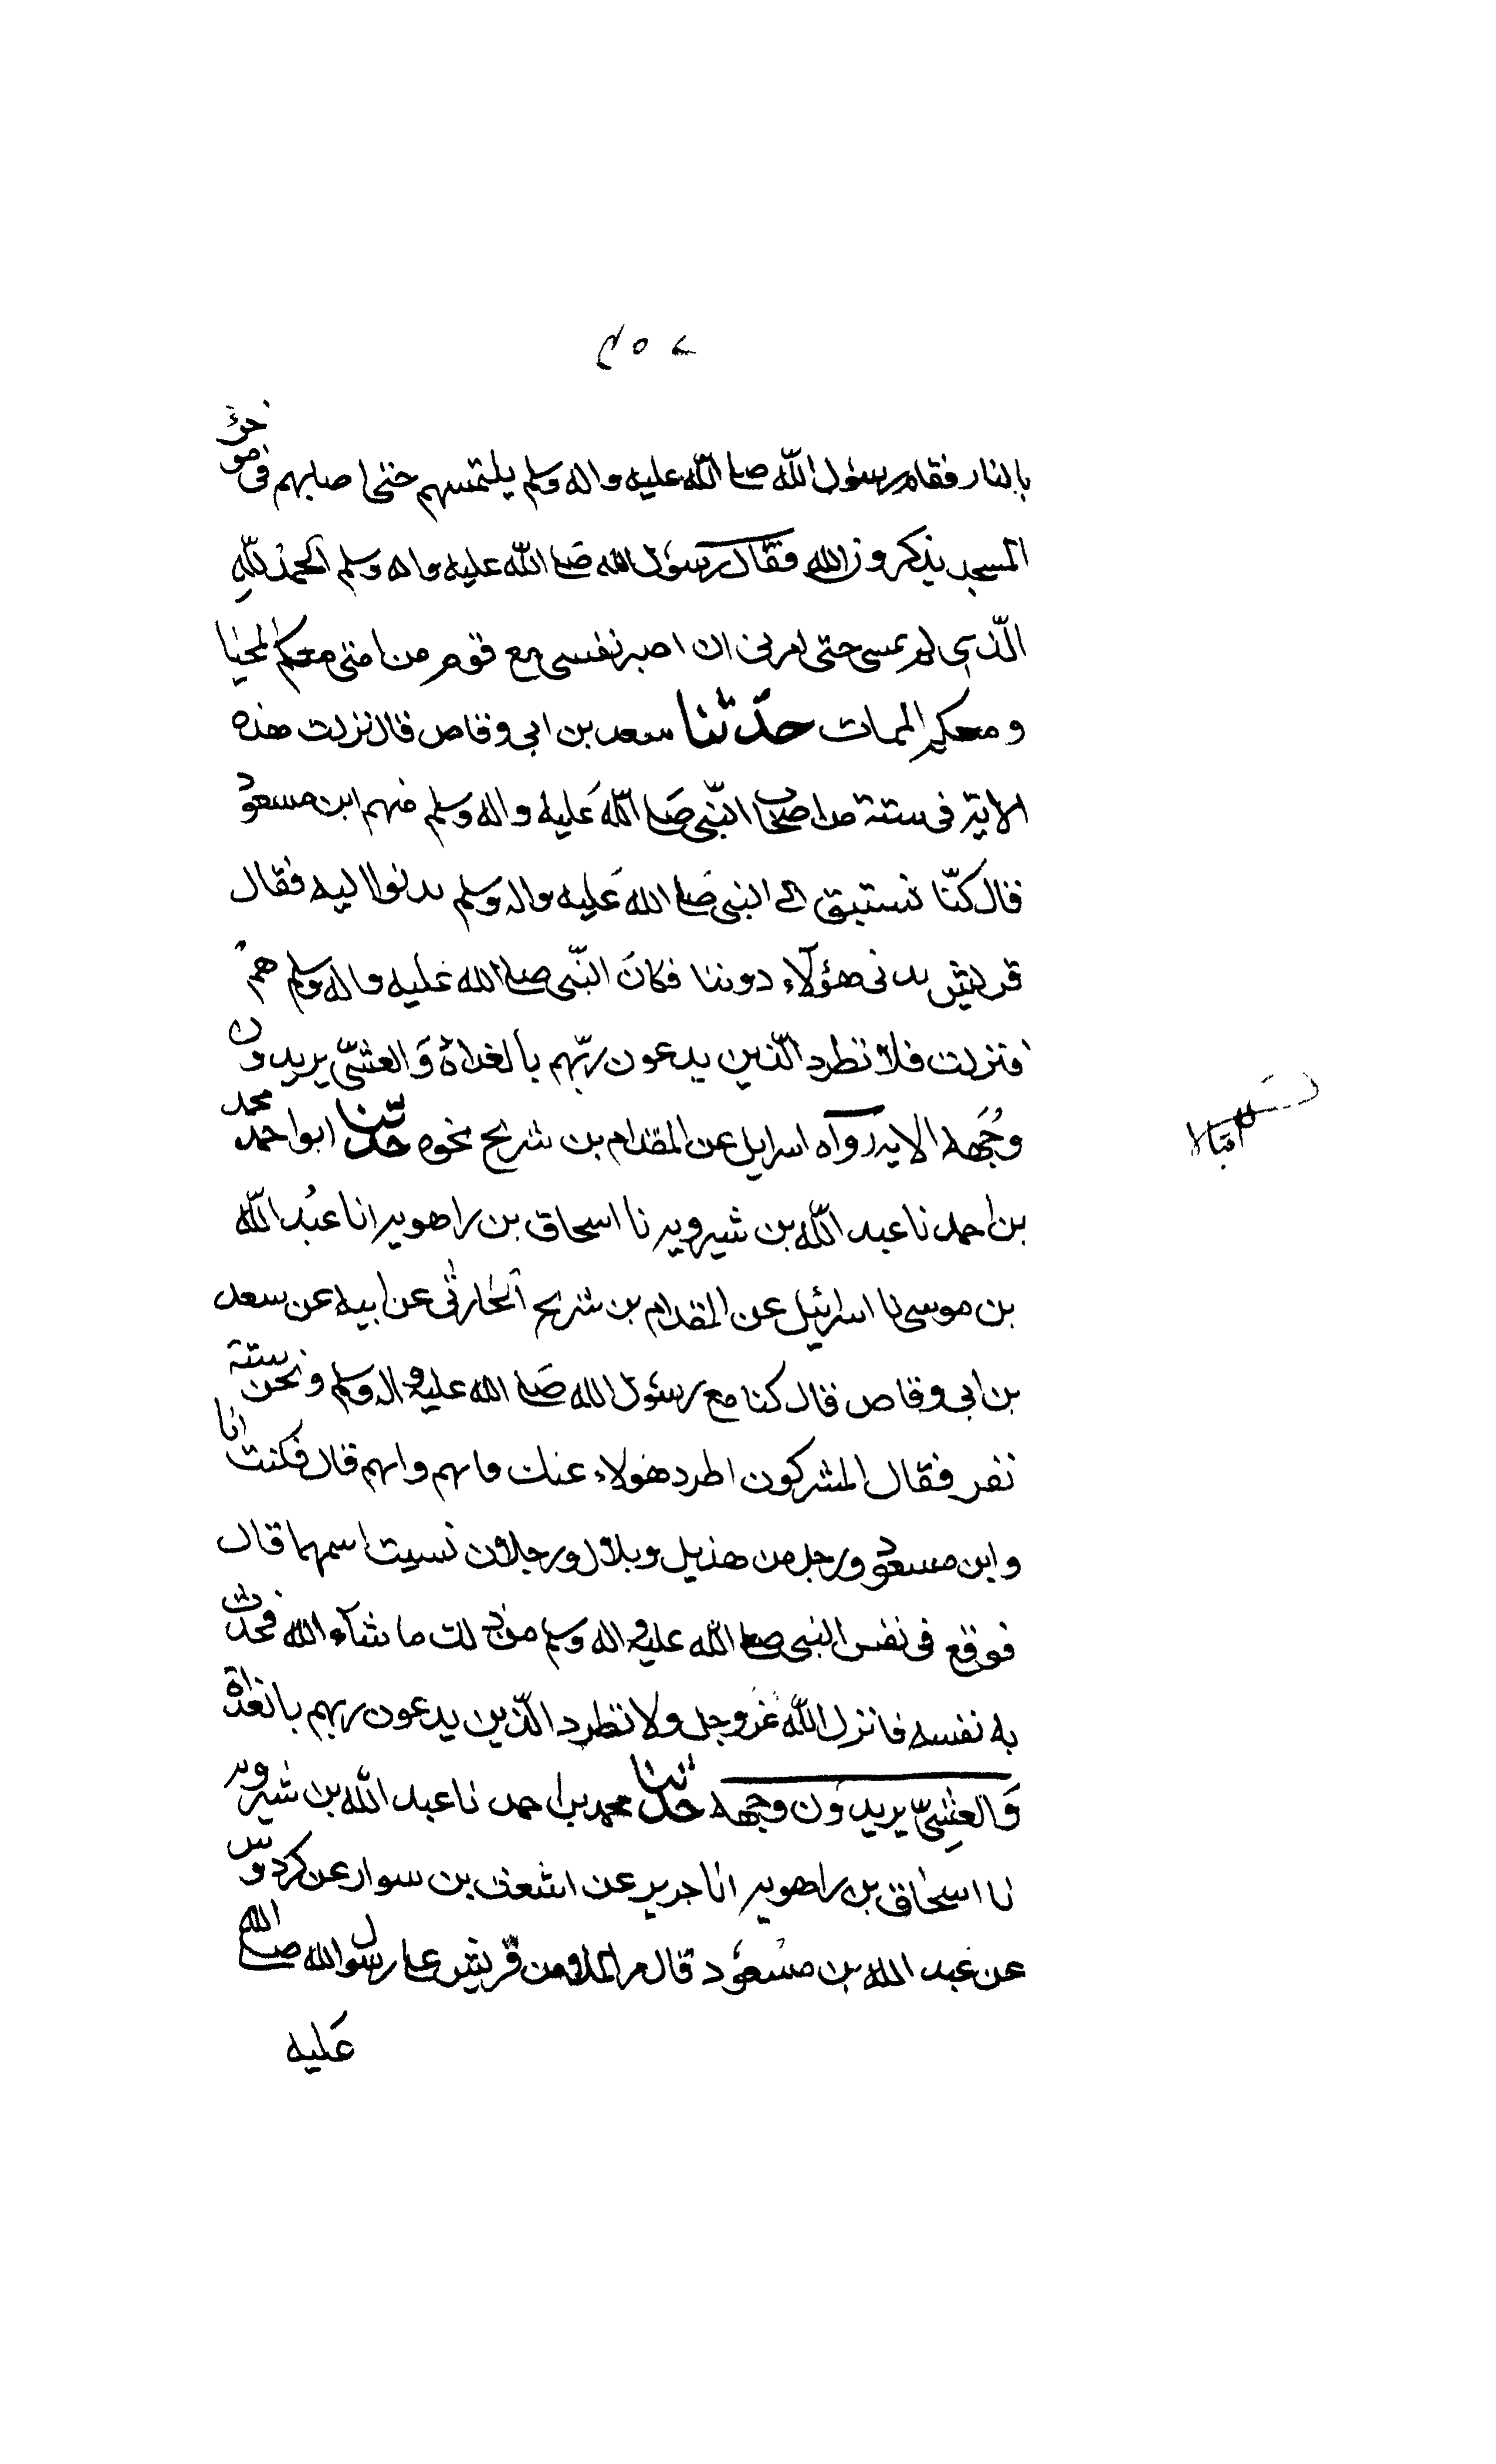 بالنار فقام رسول الله صلى الله عليه واله وسلم يلتمسهم حتى اصابهم فى موخر
المسجد يذكرون الله فقال رسول الله صَلى الله عليه واله وسلم الحمدُ للّهِ
الّذى لم يمتنى حتى امرنى ان اصبر نفسى مع قوم من امتى معكم المحيا
و معكم الممات حدّثنا سعد بن ابى وقاص قال نزلت هذه
الاية فى ستة من اصحاب النّبى صَلى الله عَليه واله وسلم منهم ابن مسعود
قال كنّا نستبق الى النبى صَلى الله عَليه واله وسلم ندنوا اليه فقال
قريش يدنى هؤلآء دوننا فكانَ النّبى صلى الله عَليه واله وسلم همّ
فنزلت فلا تطرد الّذين يدعون ربّهم بالغداة وَالعشىّ يريدون
وجُهَه الايه رواه اسرايل عن المقدام بن شريح نحوه حدّثنا ابو احمد محمد
بن احمد نا عبد اللّه بن شيرويه نا اسحاق بن راهويه انا عبُد اللّه
بن موسى نا اسرائيل عن المقدام بن شريح الحارثى عن ابيه عن سعد
بن ابى وقاص قال كنا مع رسول الله صَلى الله عليه واله وسلم ونحن ستة
نفر فقال المشركون اطرد هولاء عنك فانهم وانهم قال فكنت انا
و ابن مسعود ورجل من هذيل وبلال ورجلان نسيت اسمهما قال
فوقع فى نفس النبى صلى الله عليه واله وسلم من ذلك ما شآء الله فحدث
به نفسه فانزل اللّه عَزوجل ولا تطرد الّذين يدعون ربهم بالغداة
وَالعشِىّ يريدُون وجهه حدّثنا محمد بن احمد نا عبد اللّه بن شيرويه
نا اسحاق بن راهويه انا جرير عن اشعث بن سوار عن كردوس
عن عبد الله بن مسُعوُد قال مر الملاء من قريش على رسول الله صلى الله
عَليه